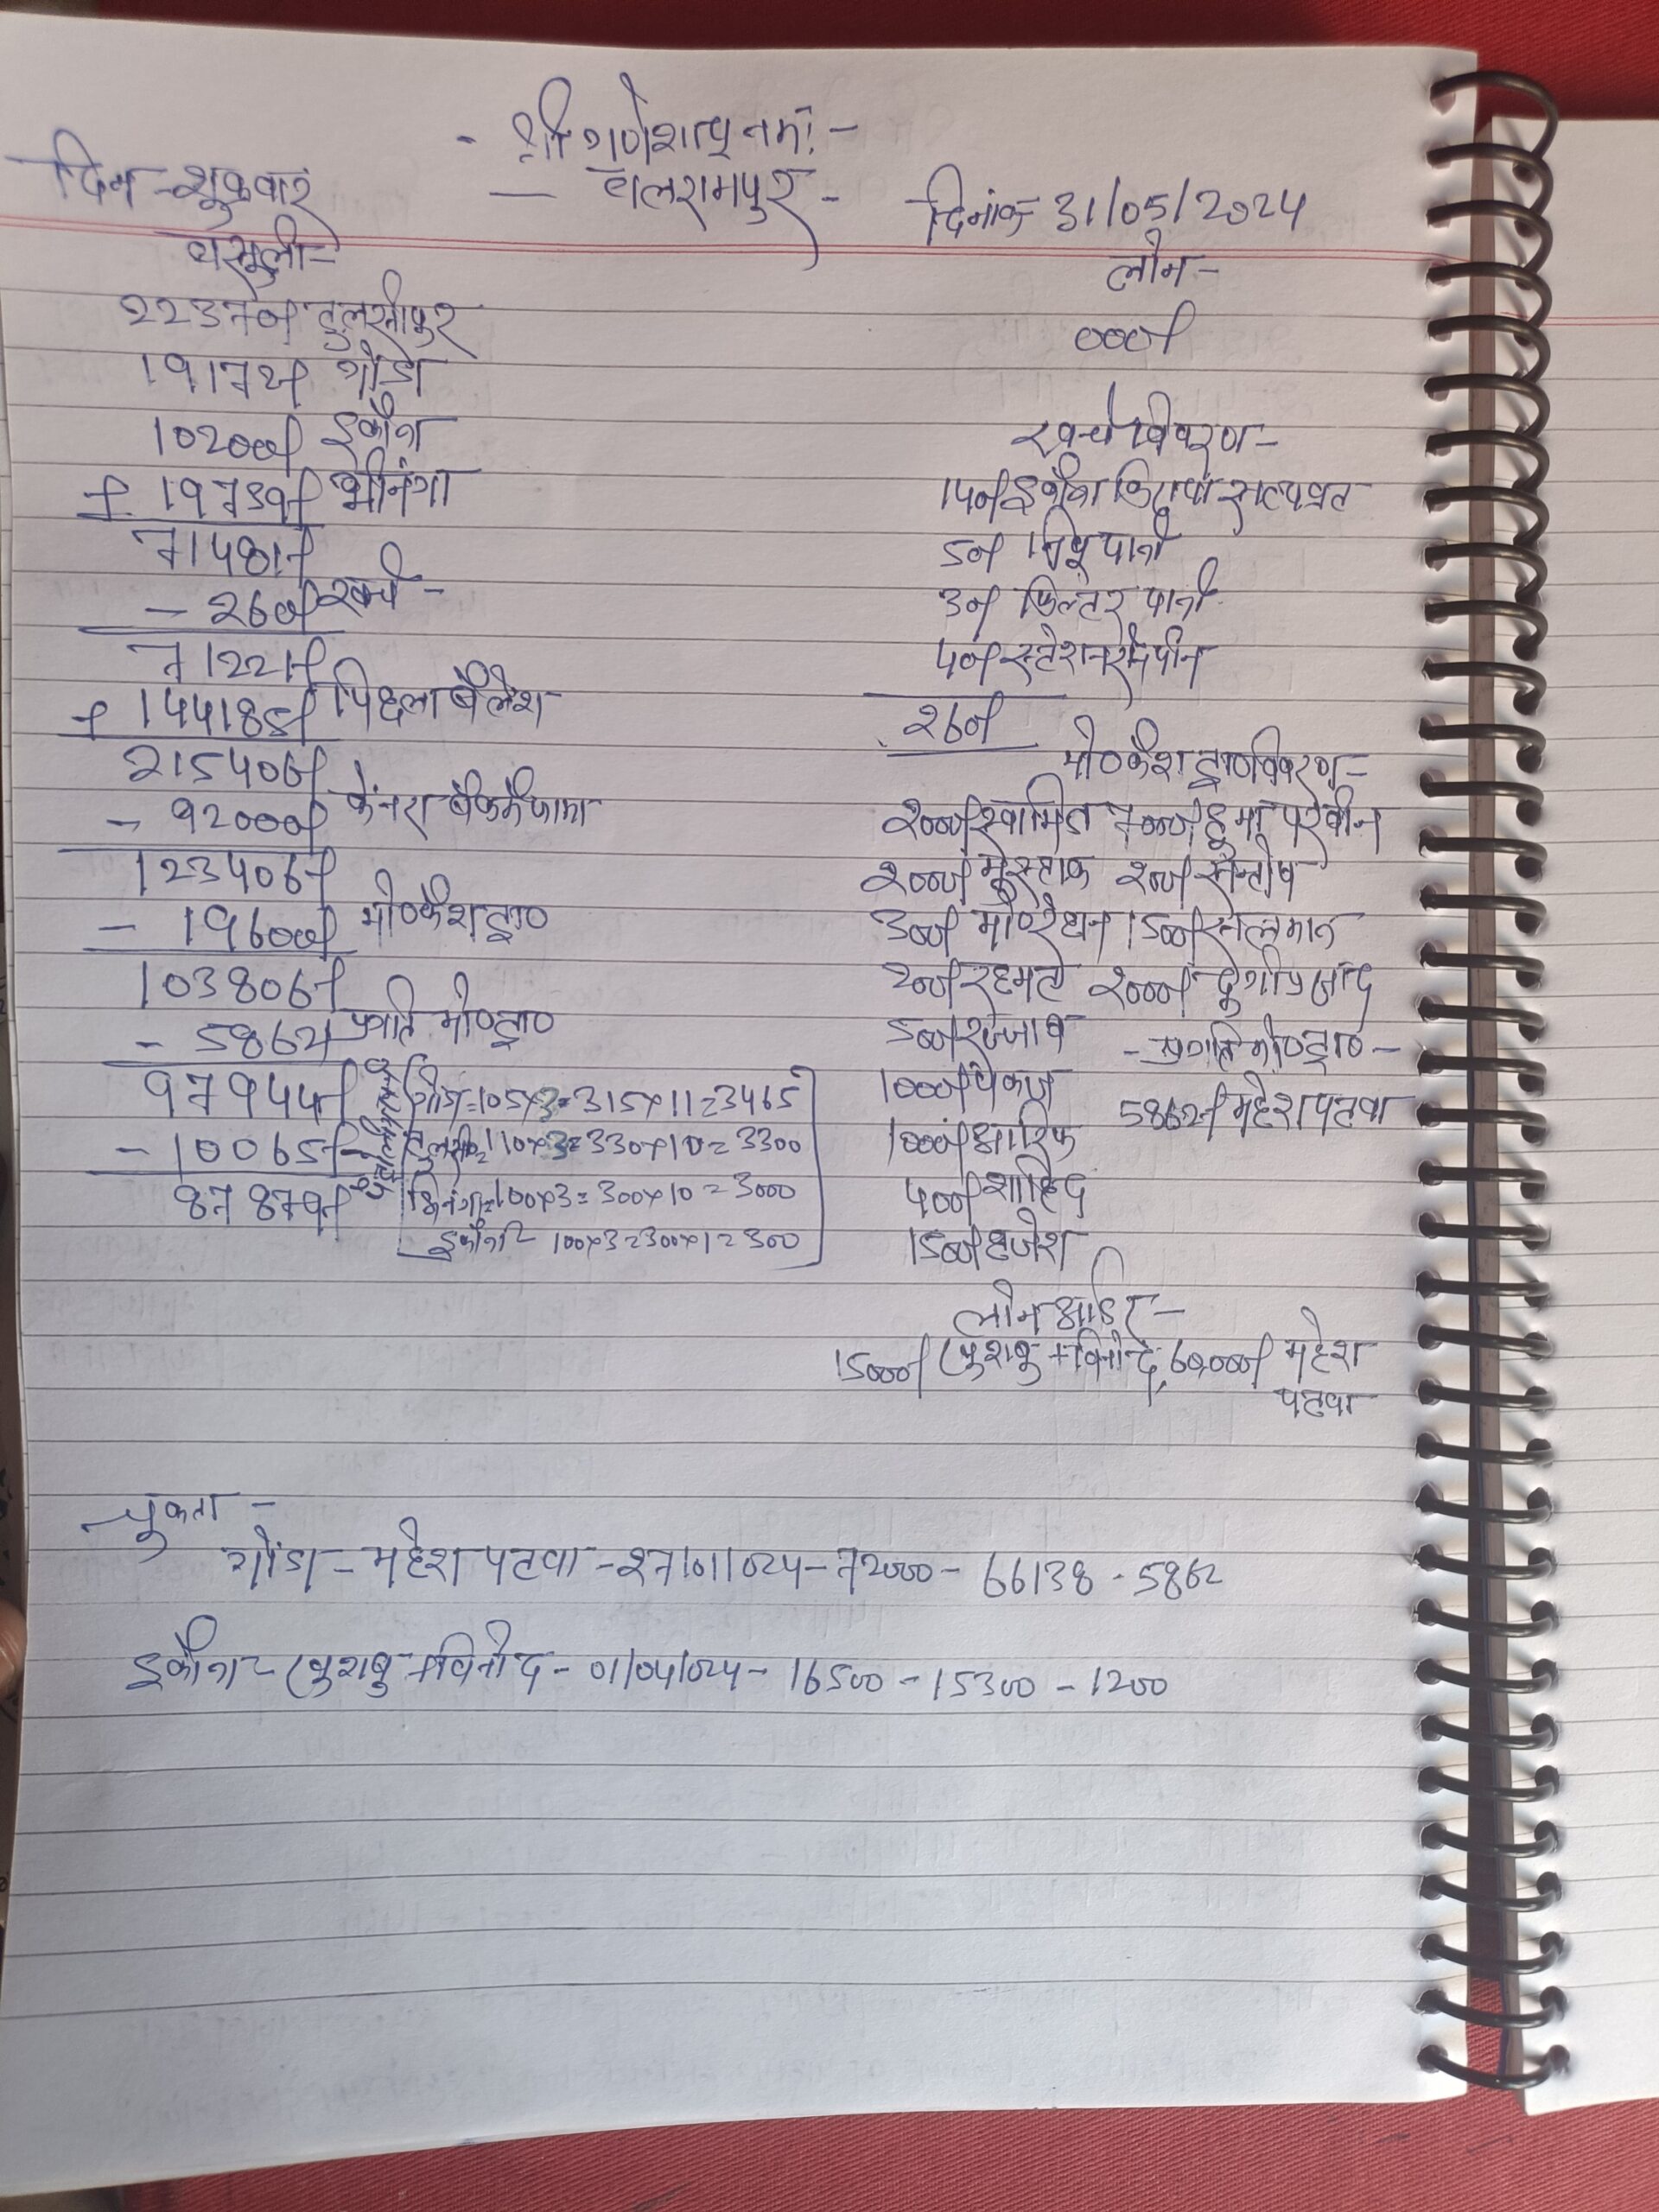 - श्री गणेशाय नमः -
दिन - शुक्रवार
- बलरामपुर -
दिनांक 31/05/2024
वसूली -
22370/ तुलसीपुर
19172/ गोंडा
10200/ इकौना
+ 19739/ भीनंगा
71481/
- 260/ खर्च -
71221/
+ 144185/ पिछला बैलेंश
215406/
- 92000/ केनरा बैंक में जमा
123406/
- 19600/ मो० कैश द्वा०
103806/
- 5862/ प्रगति मो० द्वा०
97944/
- 10065/
87879/
गोंडा = 105×3 = 315×11 = 3465
तुलसी० = 110×3 = 330×10 = 3300
भिनंगा = 100×3 = 300×10 = 3000
इकौना = 100×3 = 300×1 = 300
लोन -
000/
खर्च विवरण -
140/ इकौना किराया सत्यव्रत
50/ पानी
30/ फिल्टर पानी
40/ स्टेशनरी पिन
260/
मो० कैश द्वा० विवरण -
2000/ 7000/ हुमा परवीन
2000/ मुस्ताक 200/ सन्तोष
300/ मो० रेहान 1500/ सलमान
200/ रहमते 2000/ दुर्गा प्रसाद
500/ रज्जाब - प्रगति मो० द्वा० -
1000/ पंकज
5862/ महेश पटवा
1000/ आरिफ
400/ शाहिद
1500/ ब्रजेश
लोन आर्डर -
15000/ खुशबु + विनोद, 60,000/ महेश
पटवा
चुकता -
गोंडा - महेश पटवा - 27/01/024 - 72000 - 66138 - 5862
इकौना - खुशबु + विनोद - 01/04/024 - 16500 - 15300 - 1200